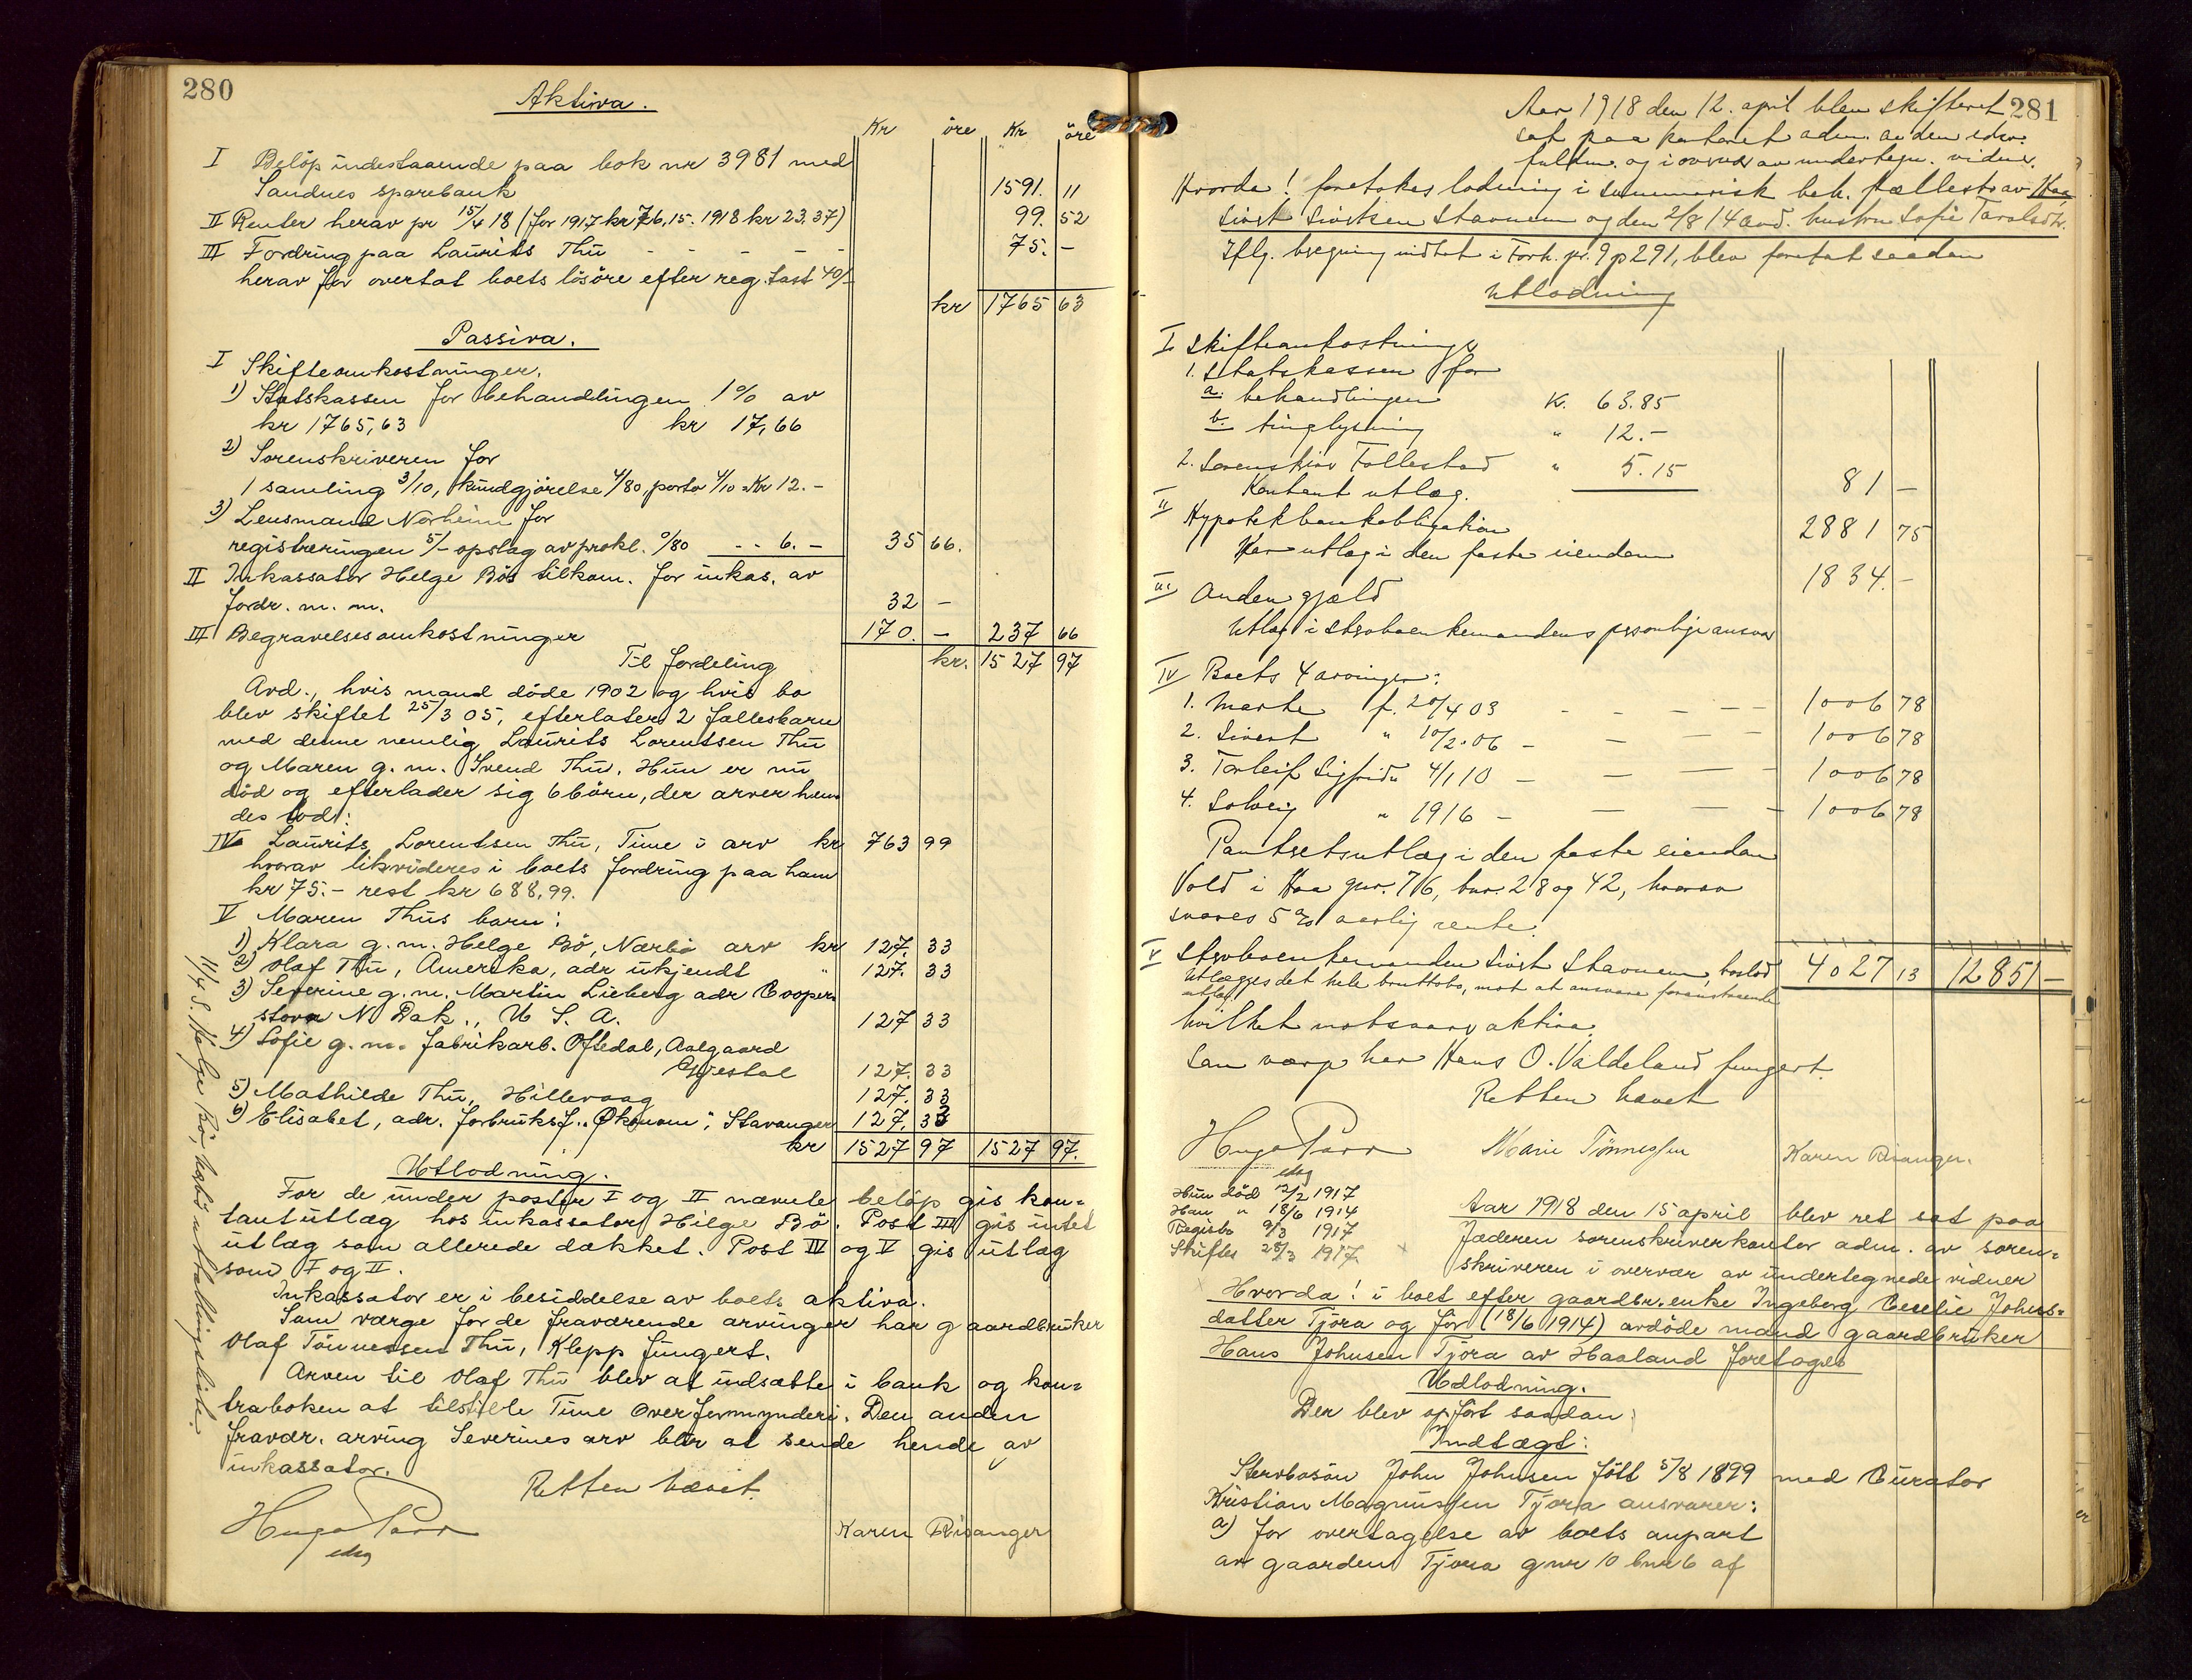 280
Aktiva.
Kr öre Kr öre
I Belöp indestaaende paa bok nr 3981 med
Sandnes sparebank 1591. 11
II Renter herav pr 15/4 18 (for 1917 kr 76,15. 1918 kr 23.37) 99. 52
III Fordring paa Laurits Thu - - - - 75. -
herav for overtat boets lösöre efter reg. tast 40/-
kr 1765 63
Passiva.
I Skifteomkostninger.
1) Statskassen for behandlingen 1% av
kr 1765,63 kr 17,66
2) Sorenskriveren for
1 samling 3/10, kundgjörelse 4/80, porto 4/10 = Kr 12.-
3) Lensmand Norheim for
registreringen 5/- opslag av prokl. 0/80 - - 6. - 35 66.
II Inkassator Helge Bös tilkom. for inkas. av
fordr. m. m. 32 -
III Begravelsesomkostninger 170. - 237 66
Til fordeling kr. 1527 97
Avd., hvis mand döde 1902 og hvis bo
blev skiftet 25/3 05, efterlater 2 fællesbarn
med denne nemlig Laurits Lorentsen Thu
og Maren g. m. Svend Thu. Hun er nu
död og efterlader sig 6 börn, der arver hen-
des lod:
IV Laurits Lorentsen Thu, Time i arv kr 763 99
hvorav likvideres i boets fordring paa ham
kr 75.- rest kr 688,99.
V Maren Thus barn:
1) Klara g. m. Helge Bö, Nærbö arv kr 127. 33
2) Olaf Thu, Amerika, adr ukjendt " 127. 33
3) Severine g. m. Martin Lieberg adr Cooper-
stown N. Dak., U. S. A. 127 33
4) Sofie g. m. fabrikarb. Oftedal, Aalgaard
Gjestal 127. 33
5) Mathilde Thu, Hillevaag 127. 33
6) Elisabet, adr. forbruksf. "Økonom", Stavanger 127. 33
kr 1527 97 1527 97.
Utlodning.
For de under poster I og II nævnte belöp gis kon-
tant utlæg hos inkassator Helge Bö. Post III gis intet
utlæg som allerede dækket. Post IV og V gis utlæg
som I og II.
Inkassator er i besiddelse av boets aktiva.
Som værge for de fraværende arvinger har gaardbruker
Olaf Tönnessen Thu, Klepp fungert.
Arven til Olaf Thu blev at indsætte i bank og kon-
traboken at tilstille Time Overformynderi. Den anden
fravær. arving Severines arv blir at sende hende av
inkassator.
Retten hævet.
Hugo Parr
edsg
Karen Risanger
11/4 S. Helge Bö, utbetalingsliste.
281
Aar 1918 den 12. april blev skifteret
sat paa kontoret adm. av den edsv.
fuldm. og i overvær av undertegn. vidner.
Hvorda! foretokes lodning i summarisk beh. fællesbo av
Sivert Sivertsen Stavnem og den 2/8 14 avd. hustru Sofie Taraldsdtr.
Iflg. beregning indtat i Forh. pr. 9 p 291, blev foretat saadan
Utlodning
I. Skifteomkostninger
1. Statskassen for
a. behandlingen K. 63.85
b. tinglysning " 12.-
2. Sorenskriv Follestad " 5.15
Kontant utlæg. 81 -
II Hypotekbankobligation 2881 75
Har utlæg i den faste eiendom
III Anden gjæld 1834. -
Utlæg i Stervboenkemandens personlige ansvar
IV Boets 4 arvinger:
1. Marte f. 20/4 03 - - - - 1006 78
2. Sivert " 10/2.06 - - - 1006 78
3. Torleif Sigfrid " 4/1 10 - - - 1006 78
4. Solveig " 1916 - - - 1006 78
Panteretsutlæg i den faste eiendom
Vold i Haa gnr. 76, bnr. 28 og 42, hvorav
svares 5 % aarlig rente.
V Stervboenkemanden Sivert Stavnem, boslod 4027 13 12851 -
Utlægges det hele bruttobo, mot at ansvare foranstaaende
utlæg
hvilket motsvarer aktiva.
Som værge har Hans O. Valdeland fungert.
Retten hævet
Hugo Parr
edsg
Marie Tönnessen
Karen Risanger.
Hun död 12/2 1917
Han " 18/6 1914
Registr 9/3 1917
Skiftes 28/3 1917.
Aar 1918 den 15 april blev ret sat paa
Jæderen sorenskriverkontor adm. av soren-
skriveren i overvær av undertegnede vidner
Hvorda! i boet efter gaardbr. enke Ingeborg Cecelie Johns-
datter Tjöra og för (18/6 1914) avdöde mand gaardbruker
Hans Johnsen Tjöra av Haaland foretages
Udlodning.
Der blev opfört saadan:
Indtægt:
Stervbosön John Johnsen fött 5/8 1899 med Curator
Kristian Magnussen Tjora ansvarer:
a) for overtagelse av boets anpart
av gaarden Tjora gnr 10 bnr 6 af